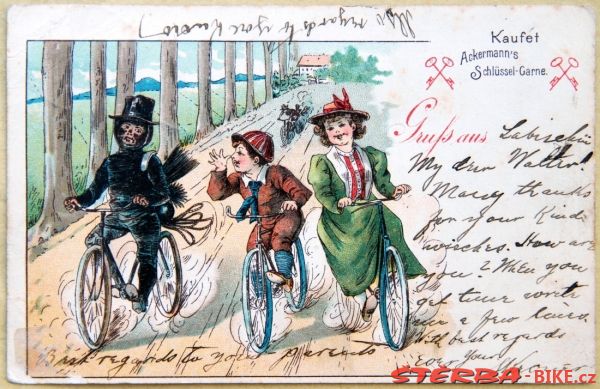 regards to your
Kaufet
Ackermann's
Schlüssel-Garne.
Gruß aus
My dear Walter!
Many thanks
for your kind
wisches. How are
you? When you
get time write
me a few lines.
With best regards
ever yours
Best regards to your parents
STERBA-BIKE.cz